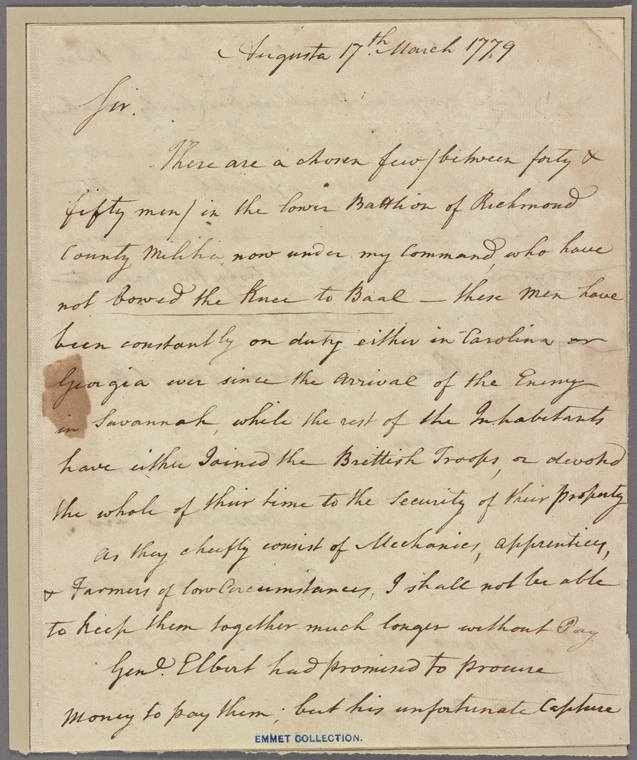 Augusta 17th March 1779
Sir.
There are a chosen few / between forty &
fifty men / in the lower Battlion of Richmond
County Militia now under my Command, who have
not bowed the Knee to Baal — these men have
been constantly on duty either in Carolina or
Georgia ever since the arrival of the Enemy
in Savannah, while the rest of the Inhabitants
have either Joined the Brittish Troops, or devoted
the whole of their time to the Security of their property
As they cheifly consist of Mechanics, apprentices,
& Farmers of low Circumstances, I shall not be able
to keep them together much longer without Pay
Genl. Elbert had promised to procure
money to pay them; but his unfortunate Capture
EMMET COLLECTION.